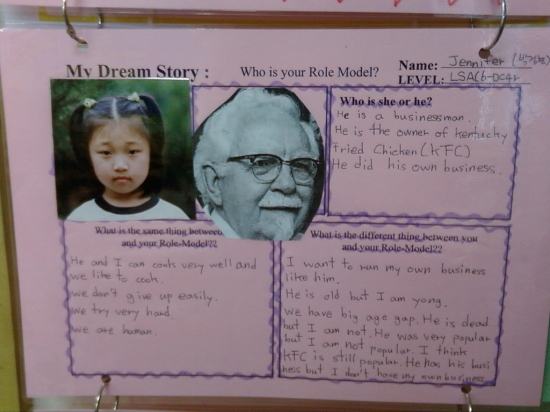 My Dream Story :
Who is your Role Model?
Name: Jennifer
LEVEL: LSA(6-Dear
Who is she or he?
He is a businessman.
He is the owner of kentucky
Fried Chicken (KFC)
He did his own business.
What is the same thing between
and your Role-Model??
He and I can cook very well and
we like to cook.
we don't give up easily.
we try very hard.
we are human.
What is the different thing between you
and your Role-Model??
I want to run my own business
like him.
He is old but I am yong.
we have big age gap. He is dead
but I am not. He was very popular
but I am not popular. I think
KFC is still popular. He has his busi
ness but I don't have my own business